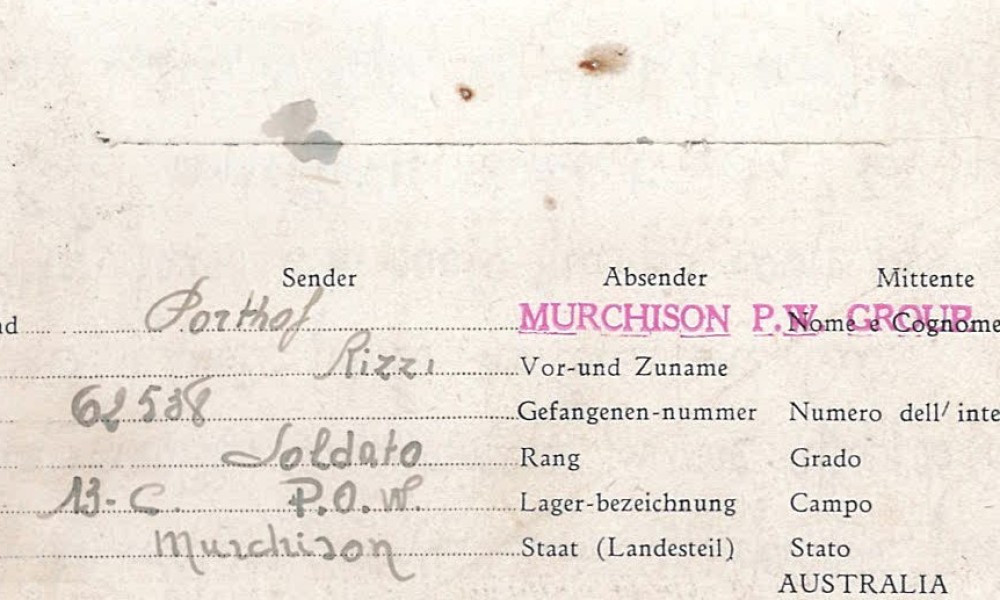 Sender Absender Mittente
nd Porthof MURCHISON P.W. GROUP Nome e Cognome
Rizzi Vor-und Zuname
62538 Gefangenen-nummer Numero dell' inte
Soldato Rang Grado
13-C. P.O.W. Lager-bezeichnung Campo
Murchison Staat (Landesteil) Stato
AUSTRALIA